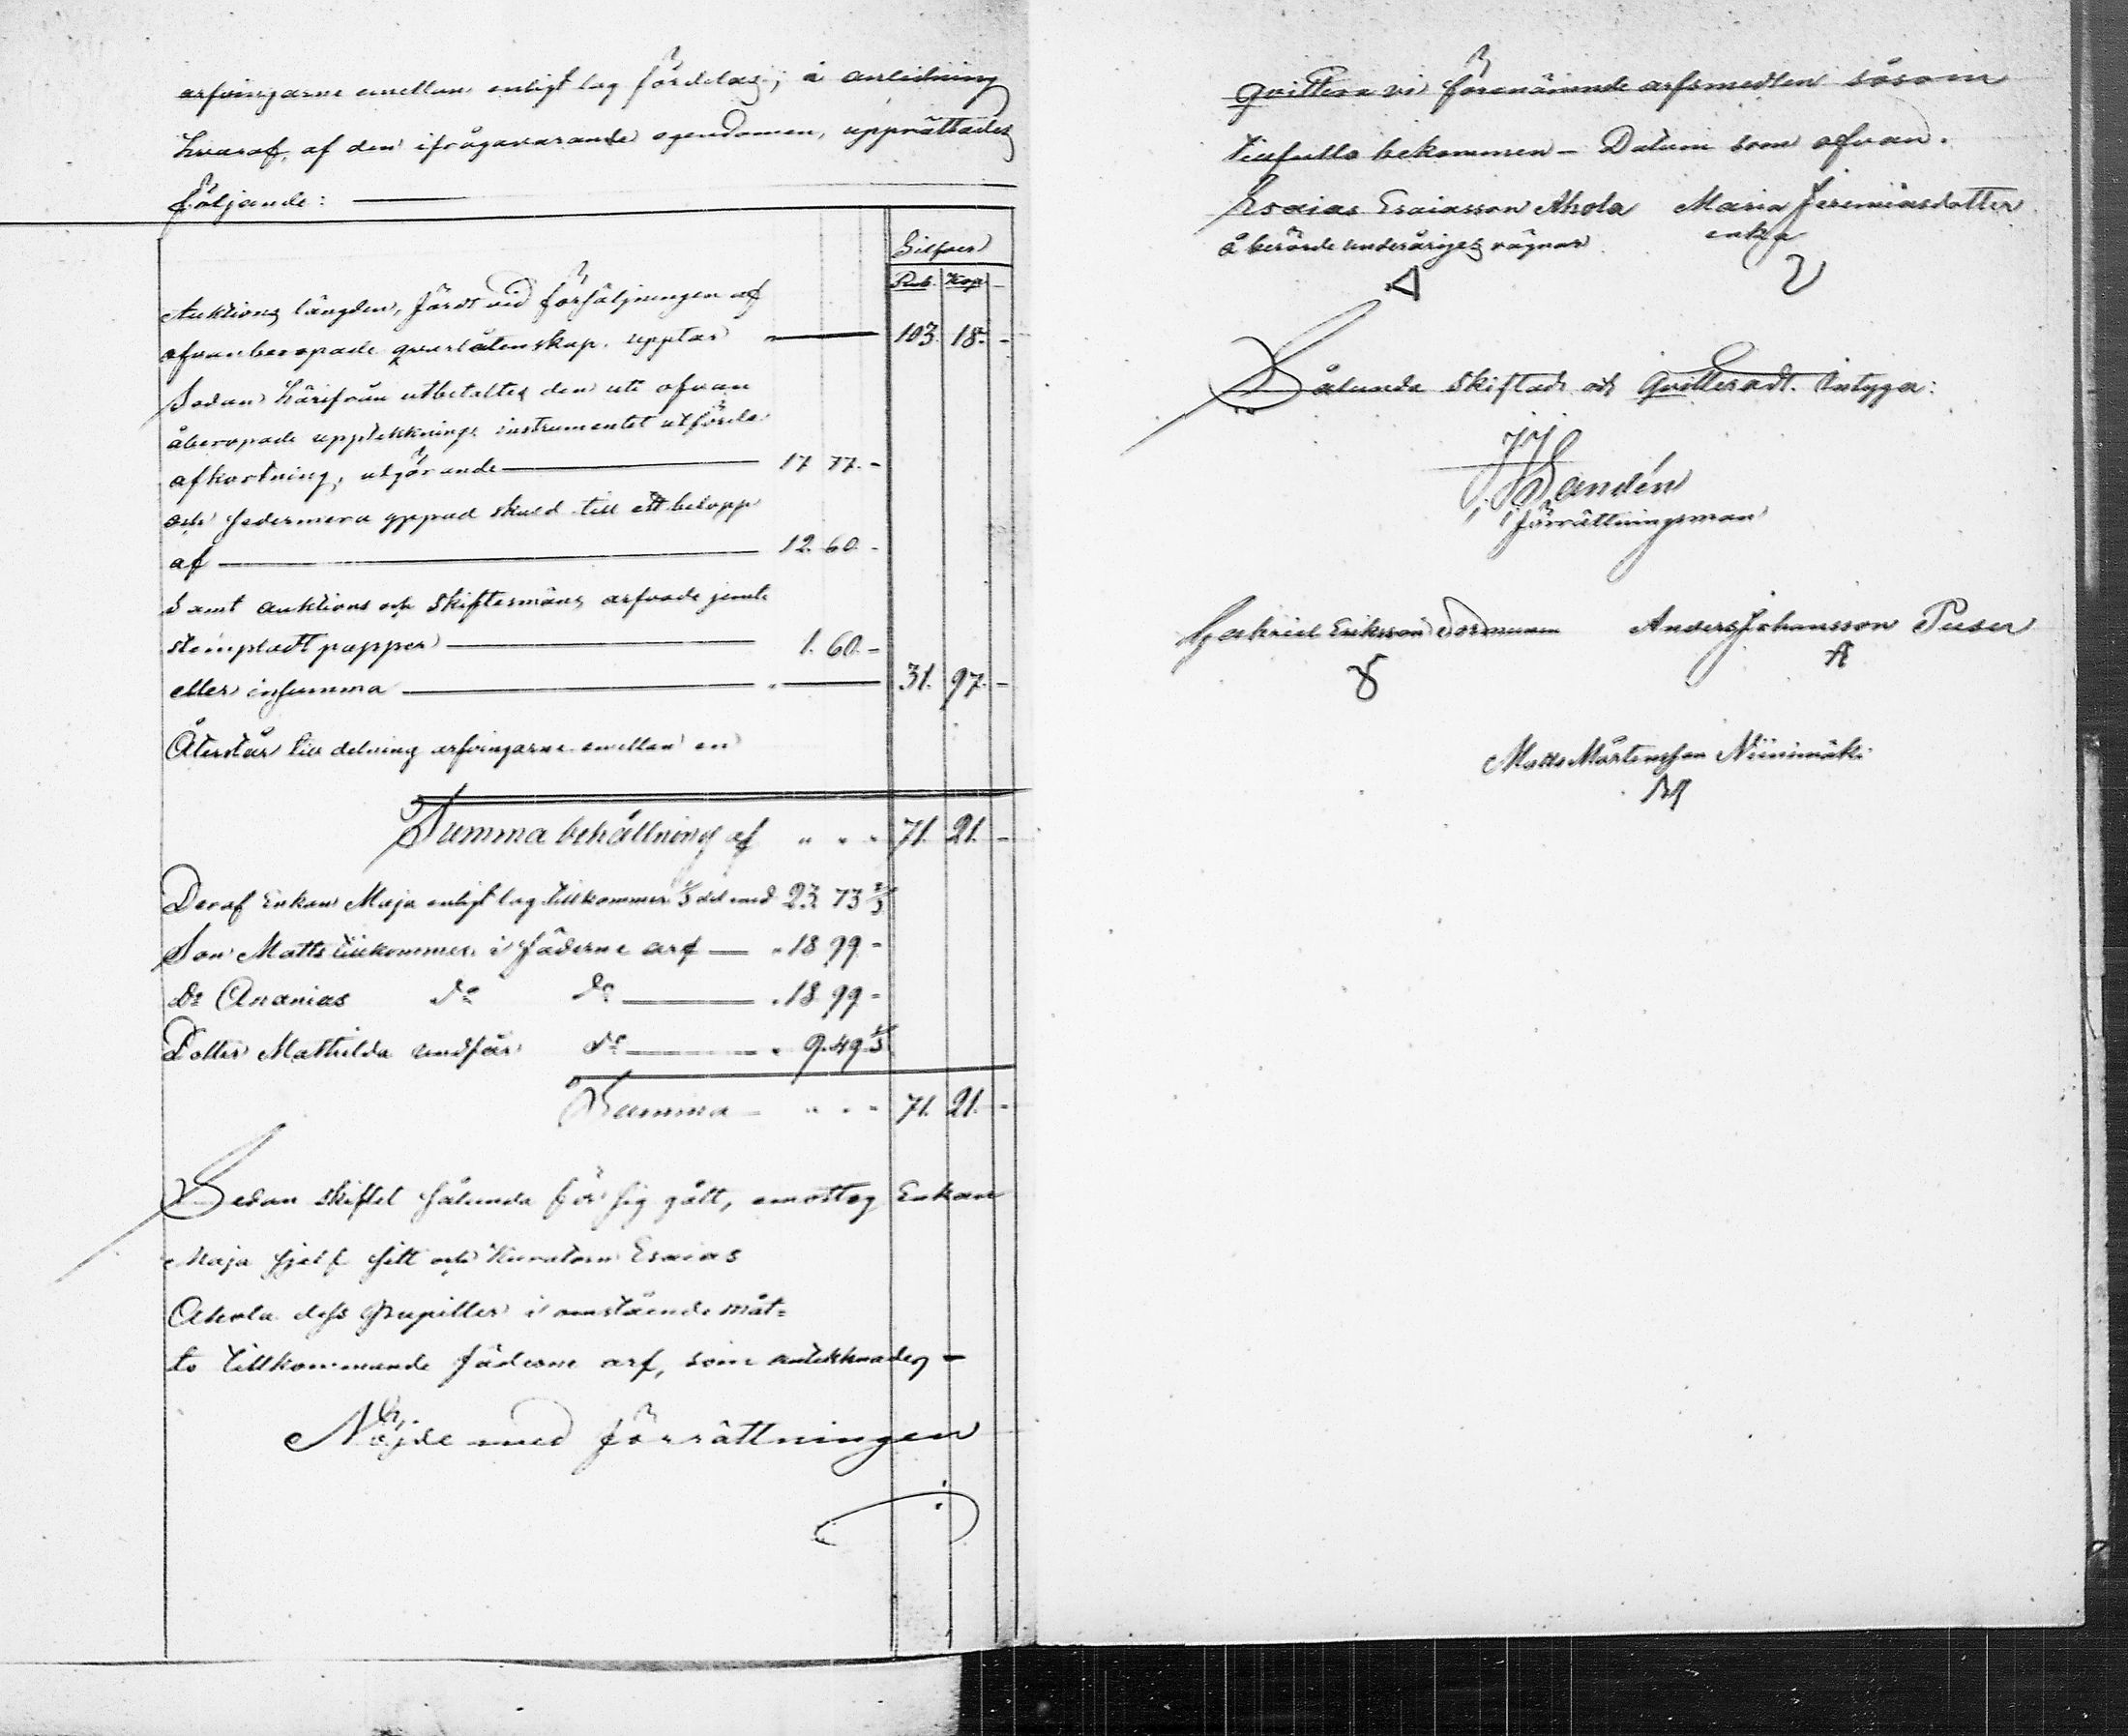 arfvingarne emellan enligt lag fördelas; i anledning
hvaraf, af den ifrågavarande egendomen, upprättades
följande:
Silfver
Rub. Kop
Auktions längden, förd vid försäljningen af
ofvanberopade qvarlåtenskap upptar 103. 18. -
Sedan härifrån utbetaltes den uti ofvan
åberopade uppteknings instrumentet utförde
afkortning, utgörande 17 77. -
och sedermera yppad skuld till ett belopp
af 12. 60. -
Samt auktions och skiftesmäns arfvode jemte
stempladt papper 1. 60. -
eller insumma 31. 97. -
Återstår till delning arfvingarne emellan en
Summa behållning af " " " 71. 21. -
Deraf Enkan Maja enligt lag tillkommer 1/3 del med 23. 73 2/3
Son Matts tillkommer i fäderne arf " 18 99 -
Do Ananias do do " 18. 99 -
Dotter Mathilda undfår do " 9. 49 1/3
Summa " " " 71. 21. -
Sedan skiftet sålunda för sig gått, emottog Enkan
Maja sjelf sitt och Kuratorn Esaias
Ahola dess Pupiller i omstående måt-
to tillkommande fäderne arf, som antekknades -
Nöjde med förrättningen
qvittera vi förenämnde arfsmedlen såsom
tillfullo bekommen - Datum som ofvan.
Esaias Esaiasson Ahola Maria Jeremiasdotter
å berörde underåriges vägnar enka
Sålunda skiftadt och qvitteradt. Intyga:
JJ Sandén
förrättningsman
Gabriel Eriksson Sormunen Anders Johansson Puser
Matts Mårtensson Niinimäki